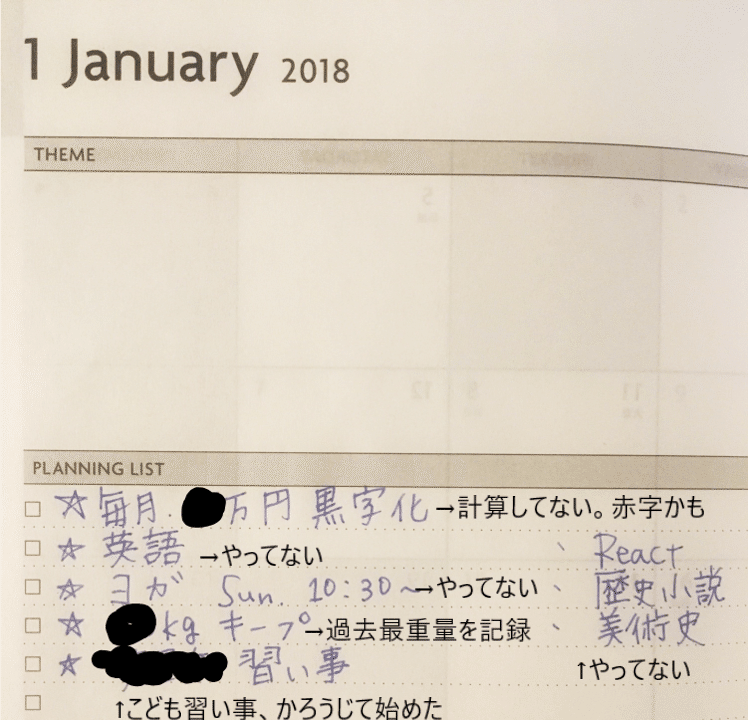 1 January 2018
THEME
PLANNING LIST
☆毎月 万円 黒字化→計算してない。赤字かも
☆英語 →やってない
、React
☆ヨガ Sun. 10:30〜→やってない
、歴史小説
☆ kgキープ→過去最重量を記録
、美術史
☆ 習い事
↑やってない
↑こども習い事、かろうじて始めた